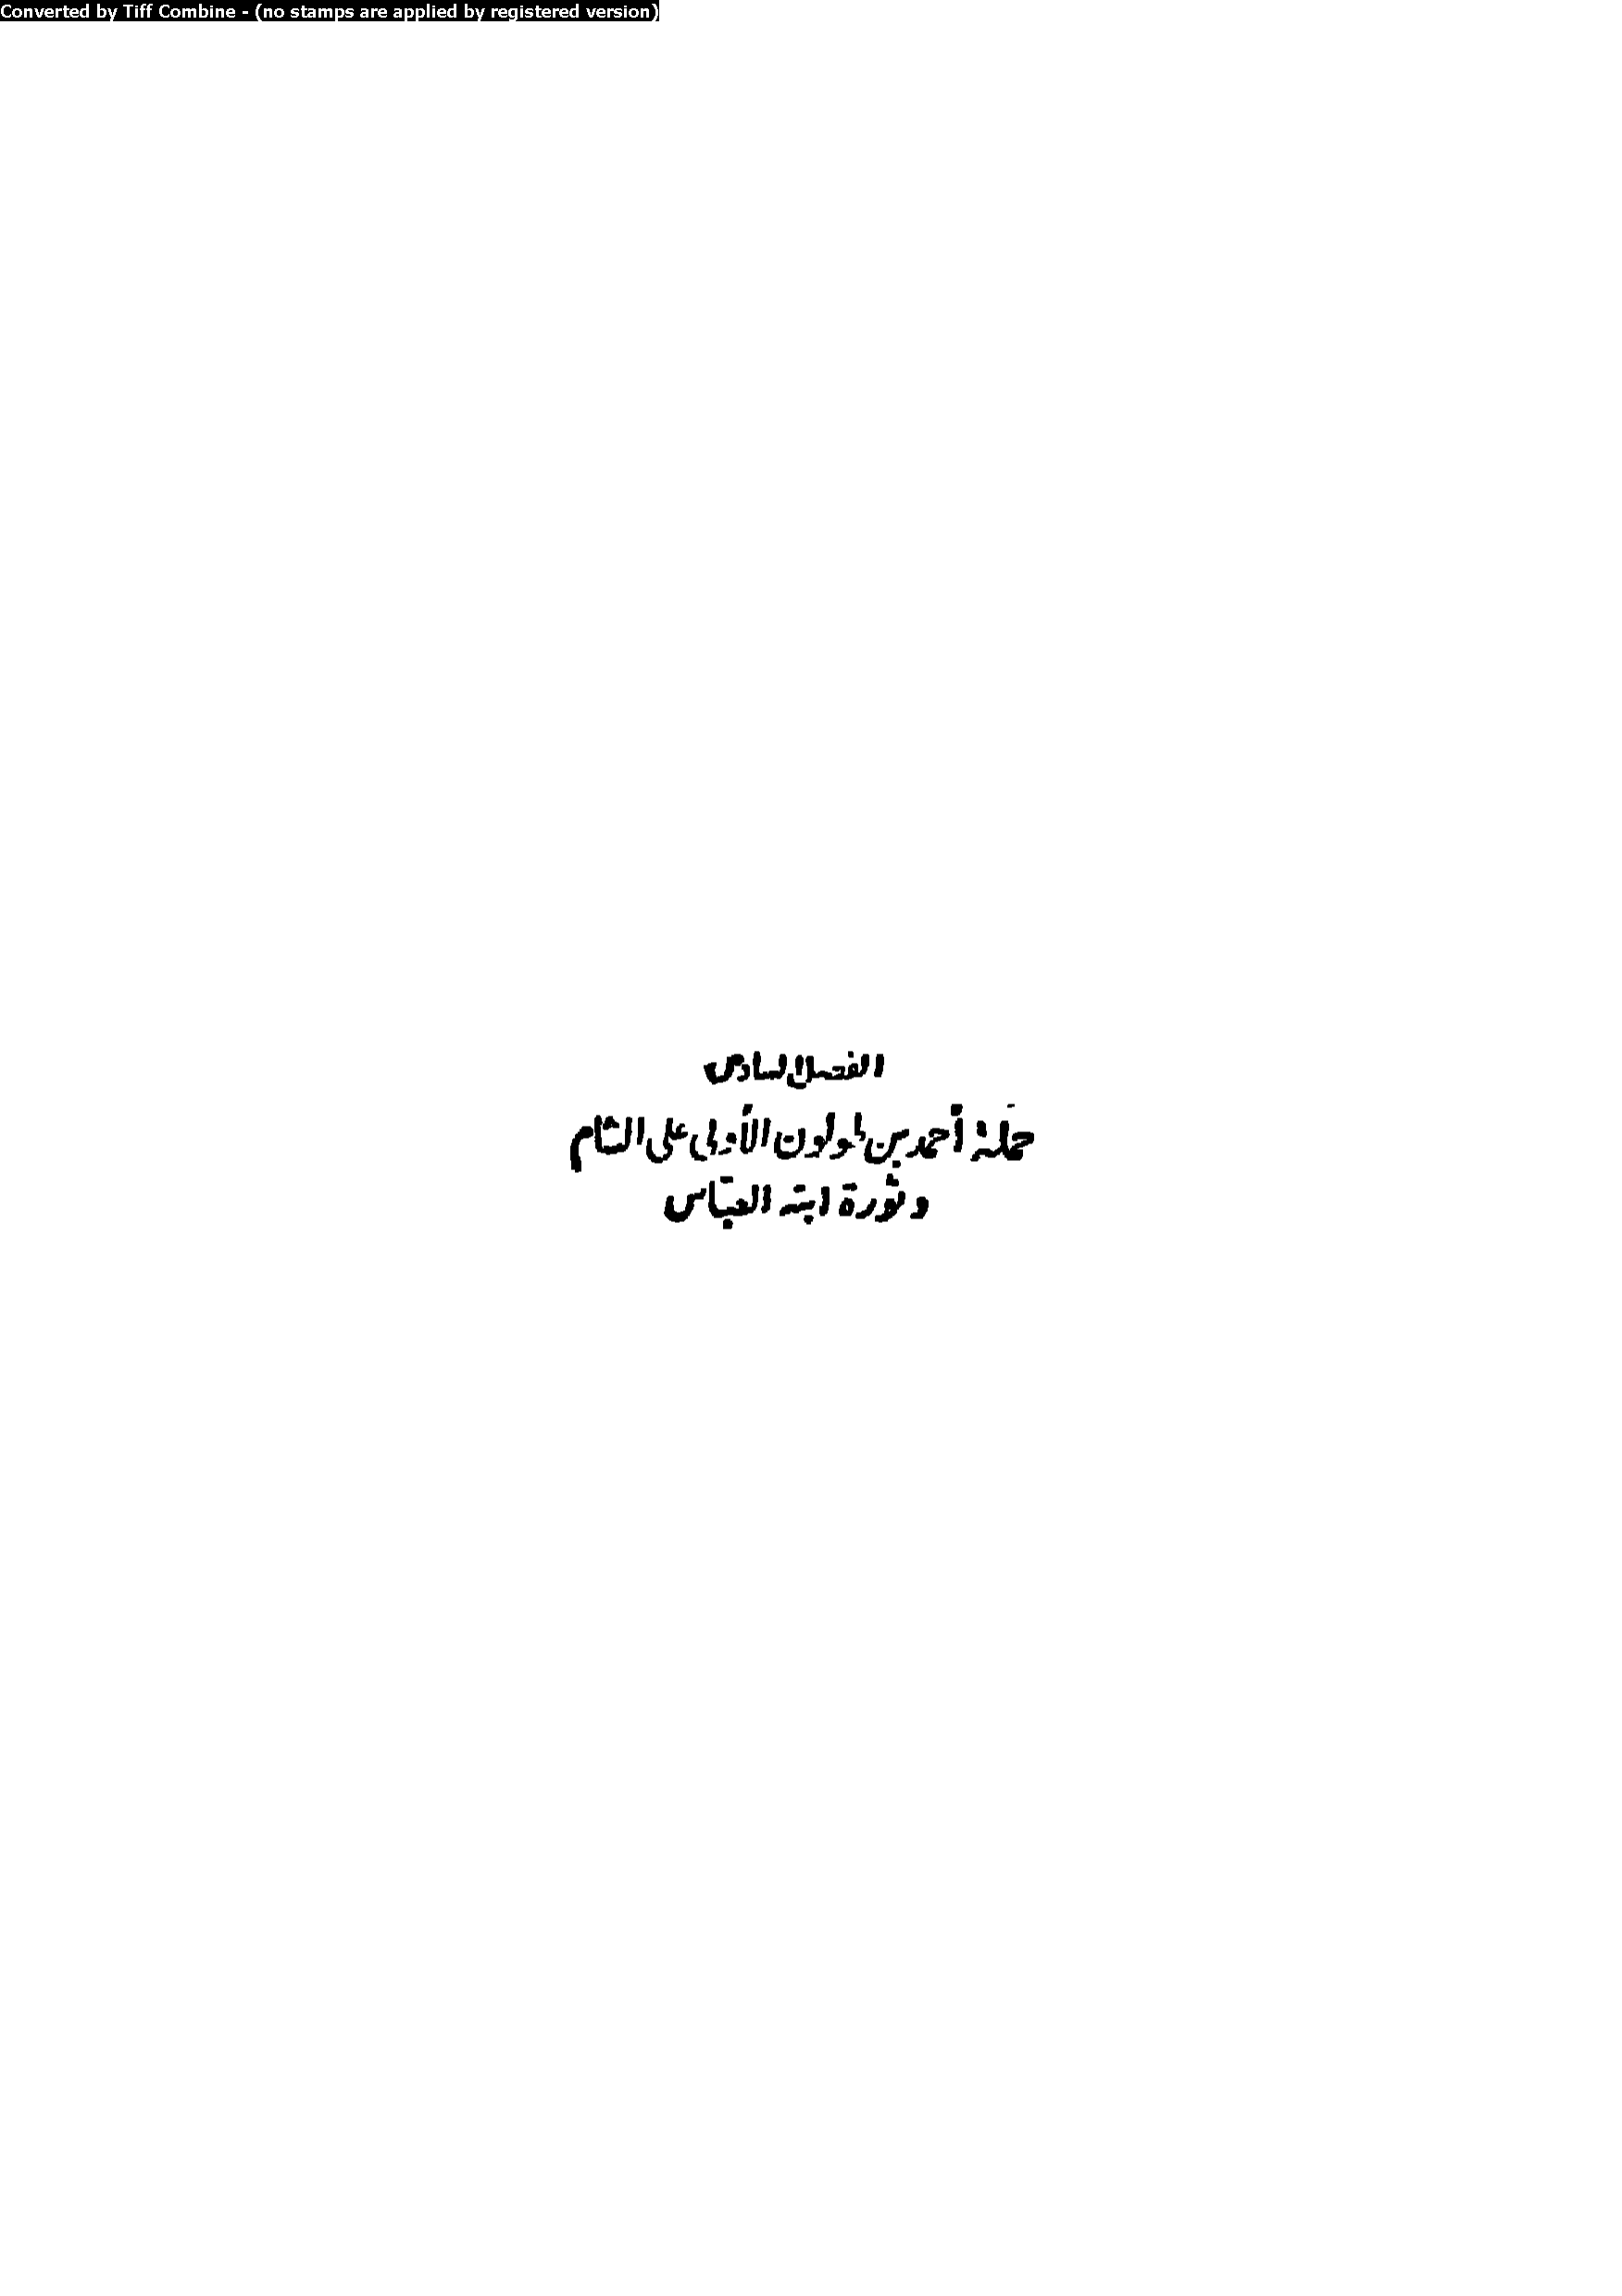 Converted by Tiff Combine - (no stamps are applied by registered version)
الفصل السادس
حملة أحمد بن طولون الأولى على الشام
وثورة ابنه العبّاس